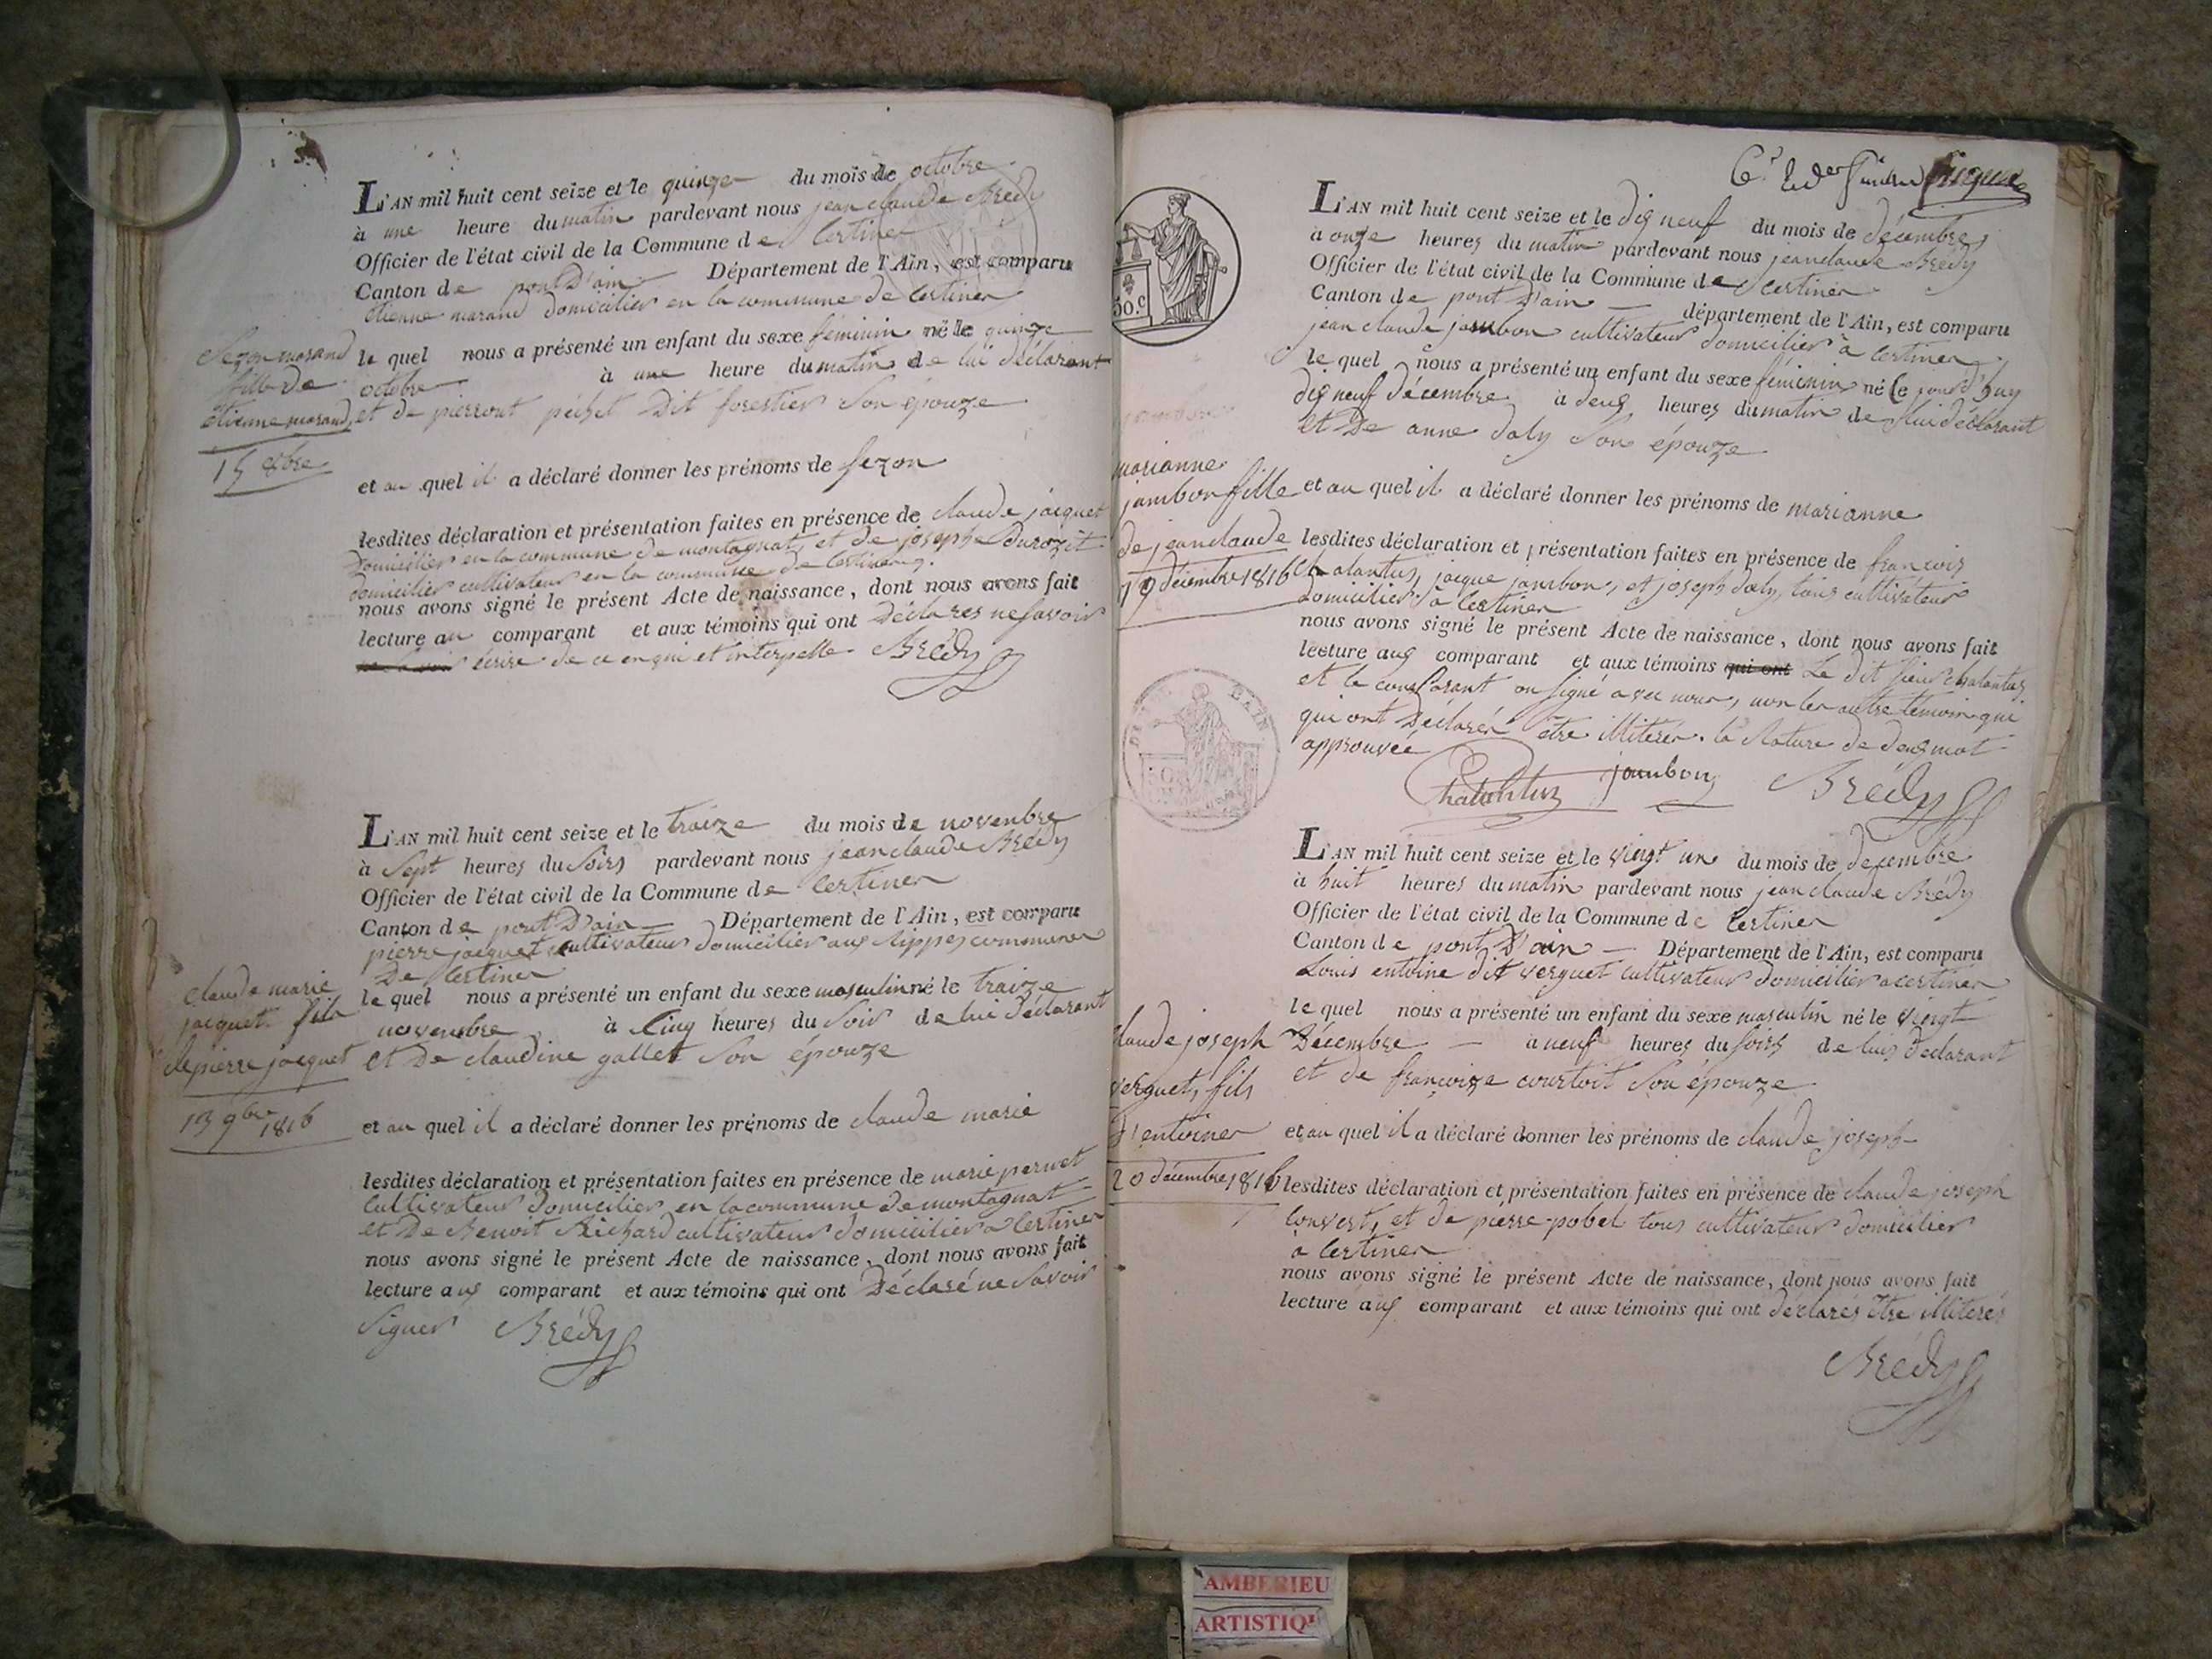 L'AN mil huit cent seize et le quinze du mois de octobre
à une heure du matin pardevant nous jean claude Brédy
Officier de l'état civil de la Commune de Certines
Canton de pont D'ain Département de l'Ain, est comparu
etienne marand domicilier en la commune de Certines
le quel nous a présenté un enfant du sexe féminin né le quinze
octobre à une heure du matin de lui déclarant
et de pierront péchet dit forestier Son épouze
et au quel il a déclaré donner les prénoms de fezon
lesdites déclaration et présentation faites en présence de claude jacquet
Domicilier en la commune de montagnat, et de josephe Durozet
domicilier cultivateur en la commune de Certines
nous avons signé le présent Acte de naissance, dont nous avons fait
lecture au comparant et aux témoins qui ont Déclarés ne savoir
écrire de ce enqui et interpellé Brédy
marand
fille de
etienne marand
15 8bre
L'AN mil huit cent seize et le traize du mois de novenbre
à Sept heures du Soirs pardevant nous jean claude Brédy
Officier de l'état civil de la Commune de Certines
Canton de pont D'ain Département de l'Ain, est comparu
pierre jacquet cultivateur domicilier aux Rippes commune
De Certines
le quel nous a présenté un enfant du sexe masculin né le traize
novenbre à Cinq heures du Soir de lui déclarant
et De claudine gallet Son épouze
et au quel il a déclaré donner les prénoms de claude marie
lesdites déclaration et présentation faites en présence de marie pernet
Cultivateur domicilier en la commune de montagnat
et De Benoit Richard cultivateur domicilier a Certines
nous avons signé le présent Acte de naissance, dont nous avons fait
lecture aux comparant et aux témoins qui ont Déclaré ne Savoir
Signer Brédy
claude marie
jacquet fils
de pierre jacquet
13 9bre 1816
L'AN mil huit cent seize et le dix neuf du mois de décembre
à onze heures du matin pardevant nous jean claude Brédy
Officier de l'état civil de la Commune de Certines
Canton de pont D'ain département de l'Ain, est comparu
jean claude jambon cultivateur domicilier à Certines
le quel nous a présenté un enfant du sexe féminin né le jourd'huy
dix neuf décembre à deux heures du matin de lui déclarant
et De anne daly Son épouze
et au quel il a déclaré donner les prénoms de marianne
lesdites déclaration et présentation faites en présence de francois
Chatantus, jacque jambon, et joseph daly, tous cultivateur
domicilier à Certines
nous avons signé le présent Acte de naissance, dont nous avons fait
lecture aux comparant et aux témoins qui ont Le dit sieur chalantus
et le comparant on signé avec nous, non les autre temoin qui
qui ont Déclarer être illiterés. la Rature de deux mot
approuvée
jambon Brédy
marianne
jambon fille
de jean claude
19 décembre 1816
50.c
L'AN mil huit cent seize et le vingt un du mois de decembre
à huit heures du matin pardevant nous jean claude Brédy
Officier de l'état civil de la Commune de Certines
Canton de pont D'ain Département de l'Ain, est comparu
Louis entoine dit verguet cultivateur domicilier a certines
le quel nous a présenté un enfant du sexe masculin né le vingt
Décembre à neuf heures du soirs de lui declarant
et de francoize courtoit Son épouze
et au quel il a déclaré donner les prénoms de claude joseph
lesdites déclaration et présentation faites en présence de claude joseph
Convert, et de pierre pobel tous cultivateur domicilier
à Certines
nous avons signé le présent Acte de naissance, dont nous avons fait
lecture aux comparant et aux témoins qui ont déclarés être illiterés
Brédy
claude joseph
verguet, fils
d'entoines
20 décembre 1816
AMBERIEU
ARTISTIQU